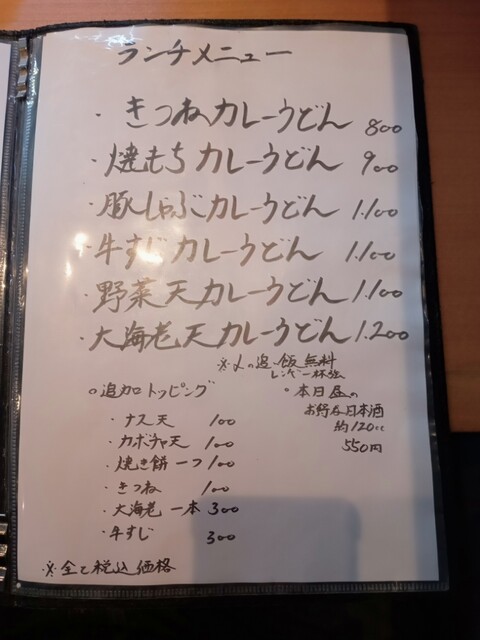 ランチメニュー
・きつねカレーうどん 800
・焼もちカレーうどん 900
・豚しゃぶカレーうどん 1.100
・牛すじカレーうどん 1.100
・野菜天カレーうどん 1.100
・大海老天カレーうどん 1.200
※〆の追い飯無料
○追加トッピング
・ナス天 100
・カボチャ天 100
・焼き餅一つ 100
・きつね 100
・大海老 一本 300
・牛すじ 300
○本日昼の
お野な日本酒
約120cc
550円
※全て税込価格